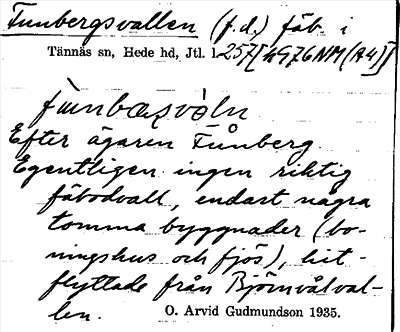 Funbergsvallen (f.d.) fäb. i
Tännäs sn, Hede hd, Jtl. l. 257 [4976NM(A4)]
funbæsvòln
Efter ägaren Fůnberg.
Egentligen ingen riktig
fäbodvall, endast några
tomma byggnader (bo-
ningshus och fjös), hit-
flyttade från Björnvålval-
len.
O. Arvid Gudmundson 1935.